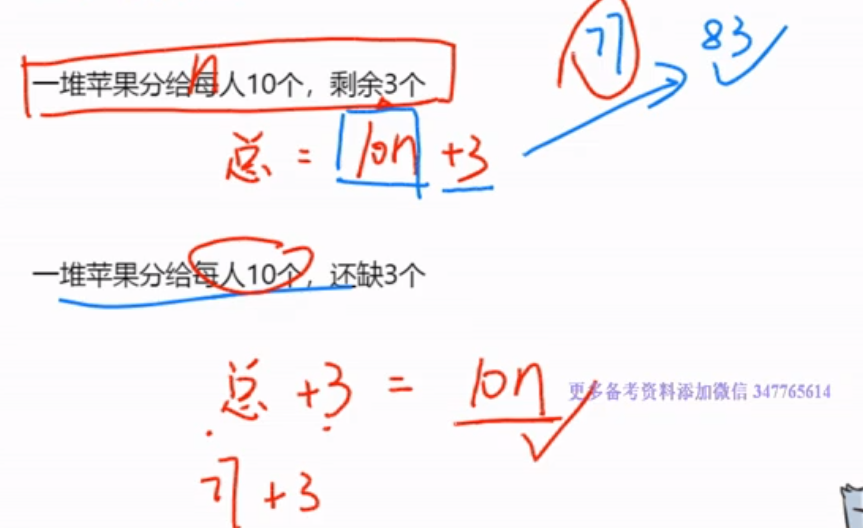 77 83
n
一堆苹果分给每人10个，剩余3个
总 = 10n +3
一堆苹果分给每人10个，还缺3个
总 +3 = 10n
更多备考资料添加微信 347765614
77 +3